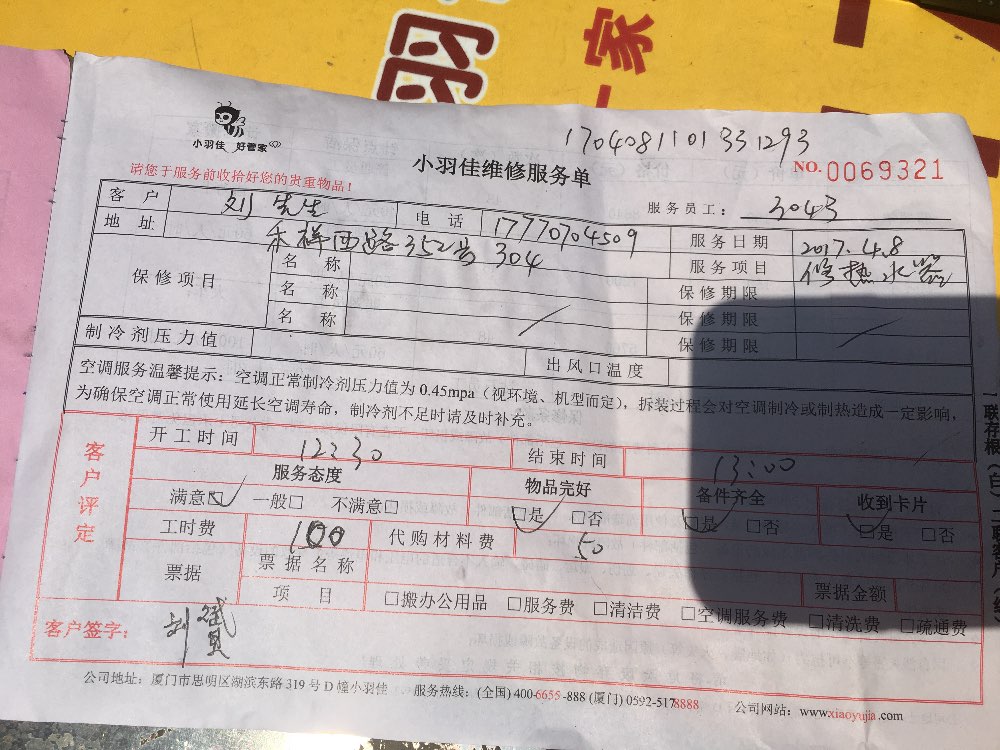 羽 一家
1704081101331293
小羽佳 好管家
小羽佳维修服务单
NO.0069321
请您于服务前收拾好您的贵重物品！
服务员工： 304号
客户 刘先生 电话 17770704509 服务日期 2017.4.8
地址 禾祥西路352号304 服务项目 修热水器
保修项目 名称 保修期限
名称 保修期限
名称 保修期限
制冷剂压力值 出风口温度
空调服务温馨提示：空调正常制冷剂压力值为0.45mpa（视环境、机型而定），拆装过程会对空调制冷或制热造成一定影响，
为确保空调正常使用延长空调寿命，制冷剂不足时请及时补充。
客户评定
开工时间 12:30 结束时间 13:00
服务态度 物品完好 备件齐全 收到卡片
满意☑ 一般□ 不满意□ ☑是 □否 ☑是 □否 ☑是 □否
工时费 100 代购材料费 50
票据 票据名称 票据金额
项目 □搬办公用品 □服务费 □清洁费 □空调服务费 □清洗费 □疏通费
客户签字： 刘斌
公司地址：厦门市思明区湖滨东路319号D幢小羽佳 服务热线：(全国)400-6655-888 (厦门)0592-5178888 公司网站：www.xiaoyujia.com